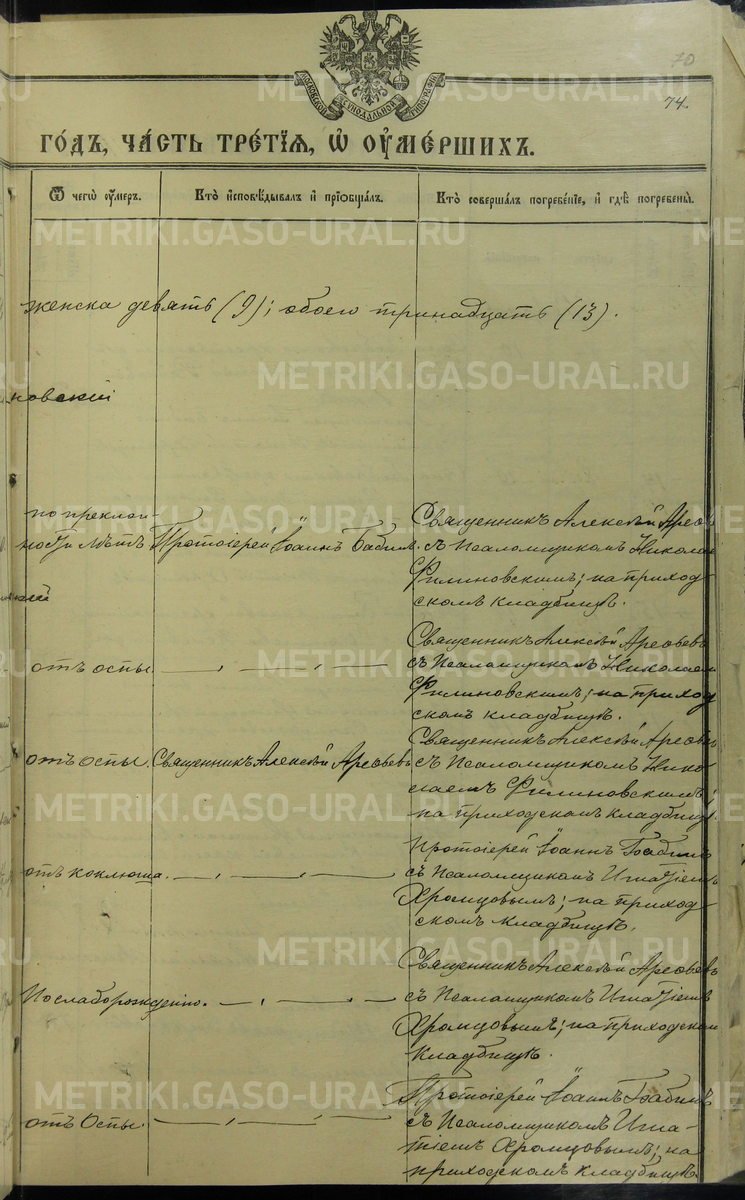 70
74.
МОСКОВСКОЙ СѴНОДАЛЬНОЙ ТИПОГРАФІИ
ГО́ДЪ, ЧА́СТЬ ТРЕ́ТЇѦ, Ѿ ОУ҆МЕ́РШИХЪ.
Ѿ чегѡ̀ ᲂу҆́меръ.
Кто̀ и҆сповѣ́дывалъ и҆ прїѡбща́лъ.
Кто̀ соверша́лъ погребе́нїе, и҆ гдѣ̀ погребены̀.
женска девять (9); обоего тринадцать (13).
новский
по преклон-
ности лѣтъ
Протоіерей Іоаннъ Бабин.
Священникъ Алексѣй Арефь
съ Псаломщикомъ Никола
Филиновскимъ; на приход-
скомъ кладбищѣ.
отъ оспы.
Священникъ Алексѣй Арефьевъ
съ Псаломщикомъ Николаем
Филиновскимъ; на приход
скомъ кладбищѣ.
отъ оспы.
Священникъ Алексѣй Арефьевъ
Священникъ Алексѣй Арефьевъ
съ Псаломщикомъ Нико-
лаемъ Филиновскимъ;
на приходскомъ кладбищѣ.
отъ коклюша.
Протоіерей Іоаннъ Бабинъ
съ Псаломщикомъ Игнатіемъ
Хромцовымъ; на приход-
скомъ кладбищѣ.
По слаборожденію.
Священникъ Алексѣй Арефьевъ
съ Псаломщикомъ Игнатіемъ
Хромцовымъ; на приходском
кладбищѣ.
отъ Оспы.
Протоіерей Іоаннъ Бабинъ
съ Псаломщикомъ Игна-
тіемъ Хромцовымъ; на
приходскомъ кладбищѣ.
METRIKI.GASO-URAL.RU